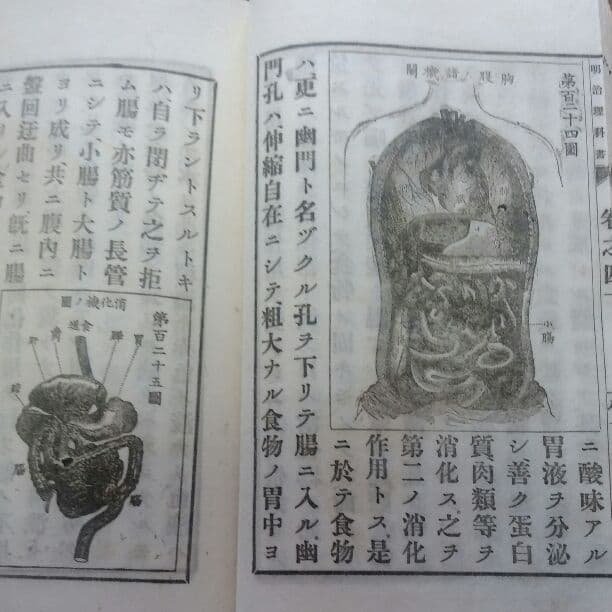 明治理科書
卷之四
第百二十四圖
胸腹ノ諸機關
小腸
ニ酸味アル
胃液ヲ分泌
シ、善ク蛋白
質肉類等ヲ
消化ス、之ヲ
第二ノ消化
作用トス、是
ニ於テ食物
ハ、更ニ幽門ト名ヅクル孔ヲ下リテ腸ニ入ル、幽
門孔ハ伸縮自在ニシテ、粗大ナル食物ノ胃中ヨ
リ下ラントスルトキ
ハ、自ラ閉ヂテ之ヲ拒
ム、腸モ亦筋質ノ長管
ニシテ、小腸ト大腸ト
ヨリ成リ、共ニ腹內ニ
盤回迂曲セリ、旣ニ腸
ニ入リシ食物
第百二十五圖
消化機ノ圖
胃
食道
腸
腸